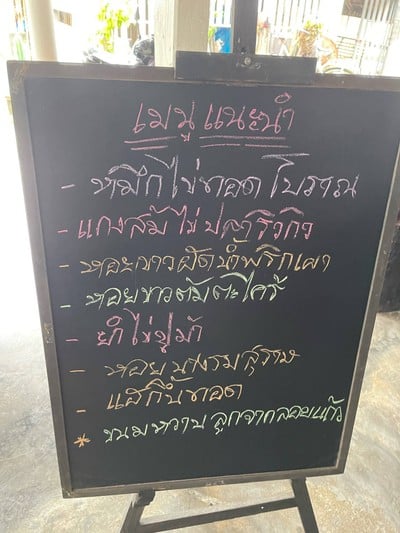 เมนูแนะนำ
- หมึกไข่ทอดโบราณ
- แกงส้มไข่ปลาริวกิว
- หอยขาวผัดน้ำพริกเผา
- หอยขาวต้มตะไคร้
- ยำไข่ปูม้า
- หอยนางรมสุราษ
- แฮ่กึ๊นทอด
* ขนมหวาน ลูกจากลอยแก้ว